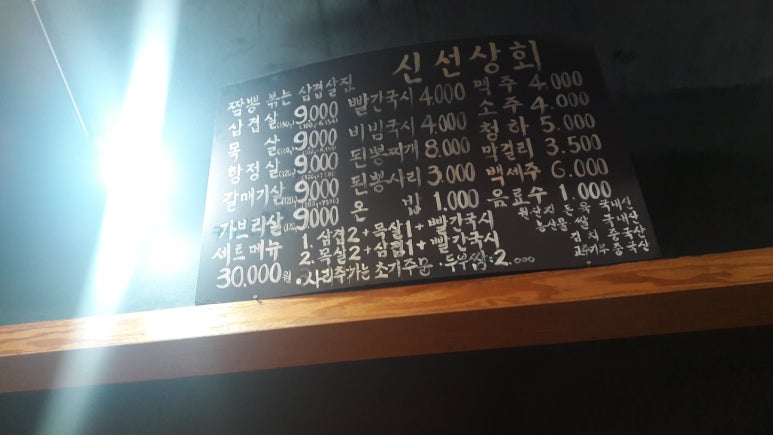 신선상회
짬뽕 볶는 삼겹살집
삼겹살 9.000
목살 9.000
항정살 9.000
갈매기살 9.000
가브리살 9.000
빨간국시 4.000
비빔국시 4.000
된뽕찌개 8.000
된뽕사리 3.000
온밥 1.000
맥주 4.000
소주 4.000
청하 5.000
막걸리 3.500
백세주 6.000
음료수 1.000
세트메뉴 1. 삼겹2+목살1+빨간국시
2. 목살2+삼겹1+빨간국시
30.000원
국내산
쌀 국내산
김치 중국산
고추가루 중국산